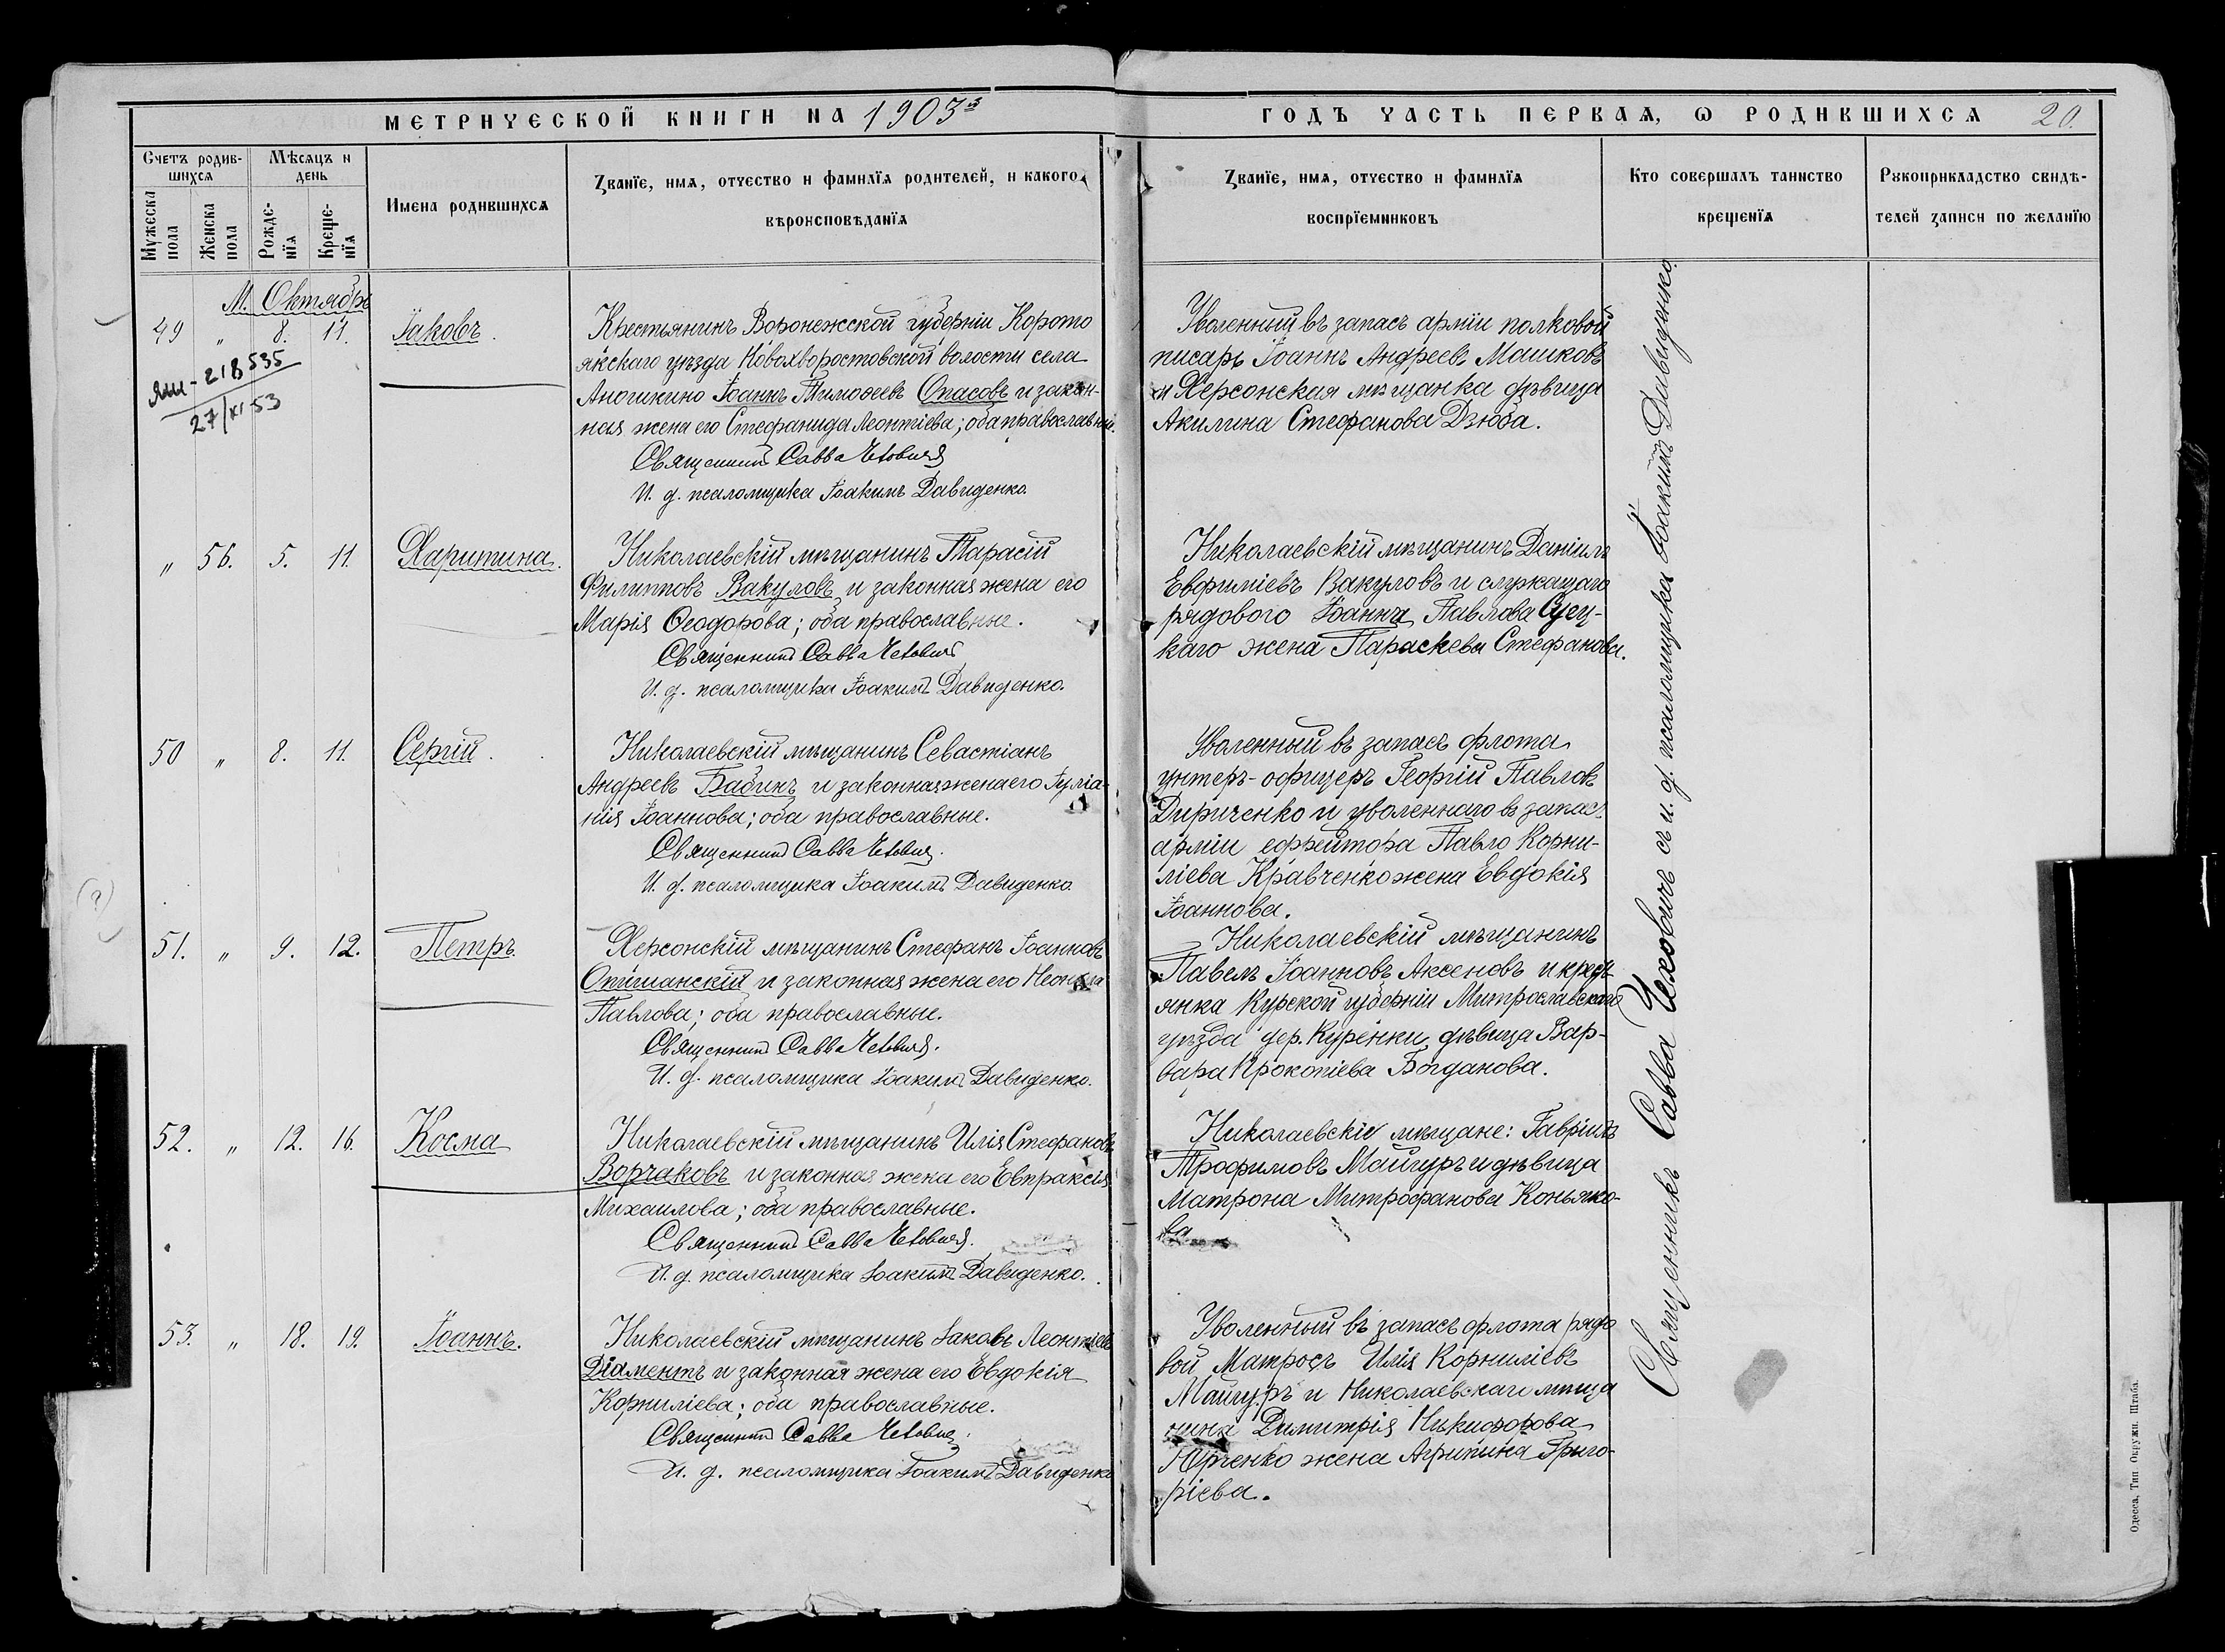 МЕТРИЧЕСКОЙ КНИГИ НА 1903й
ГОДЪ ЧАСТЬ ПЕРВАѦ, Ѡ РОДИВШИХСѦ 20.
Счетъ родив-
шихсѧ
Мѣсѧцъ и
день
Мужеска
пола
Женска
пола
Рожде-
нїѧ
Креще-
нїѧ
Имена родившихсѧ
Званїе, имѧ, отчество и фамилїѧ родителей, и какого
вѣроисповѣданїѧ
Званїе, имѧ, отчество и фамилїѧ
воспрїемниковъ
Кто совершалъ таинство
крещенїѧ
Рꙋкоприкладство свидѣ-
телей записи по желанїю
М. Октябрь
49 " 8. 11. Іаковъ.
218535
27/XI-53
Крестьянинъ Воронежской губерніи Корото
якскаго уѣзда Новохворостовской волости села
Аношкино Іоаннъ Тимоѳеевъ Спасовъ и закон-
ная жена его Стефанида Леонтіева; оба православные.
Священникъ Савва Чеховичъ
И. д. псаломщика Іоакимъ Давиденко.
Уволенный въ запасъ арміи полковой
писарь Іоаннъ Андреевъ Машковъ
и Херсонская мѣщанка дѣвица
Акилина Стефанова Дзюба.
" 56. 5. 11. Харитина.
Николаевскій мѣщанинъ Тарасій
Филипповъ Вакуловъ и законная жена его
Марія Ѳеодорова; оба православные.
Священникъ Савва Чеховичъ
И. д. псаломщика Іоакимъ Давиденко.
Николаевскій мѣщанинъ Даніилъ
Евфиміевъ Вакуловъ и служащаго
рядового Іоанна Павлова
каго жена Параскева Стефанова.
50 " 8. 11. Сергій.
Николаевскій мѣщанинъ Севастіанъ
Андреевъ Бабинъ и законная жена его Іуліа-
нія Іоаннова; оба православные.
Священникъ Савва Чеховичъ.
И. д. псаломщика Іоакимъ Давиденко
Уволенный въ запасъ флота
унтеръ-офицеръ Георгій Павловъ
Дириченко и уволеннаго въ запасъ
арміи ефрейтора Павло Корни-
ліева Кравченко жена Евдокія
Іоаннова.
51. " 9. 12. Петръ.
Херсонскій мѣщанинъ Стефанъ Іоанновъ
Опишанскій и законная жена его Неонила
Павлова; оба православные.
Священникъ Савва Чеховичъ.
И. д. псаломщика Іоакимъ Давиденко.
Николаевскій мѣщанинъ
Павелъ Іоанновъ Аксеновъ и крест
янка Курской губерніи
уѣзда дер. Куренки, дѣвица Вар-
вара Прокопіева Богданова.
52. " 12. 16. Косма
Николаевскій мѣщанинъ Илія Стефановъ
Ворчаковъ и законная жена его Евпраксія
Михаилова; оба православные.
Священникъ Савва Чеховичъ.
И. д. псаломщика Іоакимъ Давиденко.
Николаевскіе мѣщане: Гавріилъ
Трофимовъ Майгуръ и дѣвица
Матрона Митрофанова Конько-
ва
53. " 18. 19. Іоаннъ.
Николаевскій мѣщанинъ Іаковъ Леонтіевъ
Діаментъ и законная жена его Евдокія
Корниліева; оба православные.
Священникъ Савва Чеховичъ.
И. д. псаломщика Іоакимъ Давиденко
Уволенный въ запасъ флота рядо
вой Матросъ Илія Корниліевъ
Майгуръ и Николаевскаго мѣща
нина Димитрія Никифорова
Юрченко жена Агрипина Григо-
ріева.
Священникъ Савва Чеховичъ съ и. д. псаломщика Іоакимъ Давиденко.
Одесса, Тип. Окружн. Штаба.
(?)